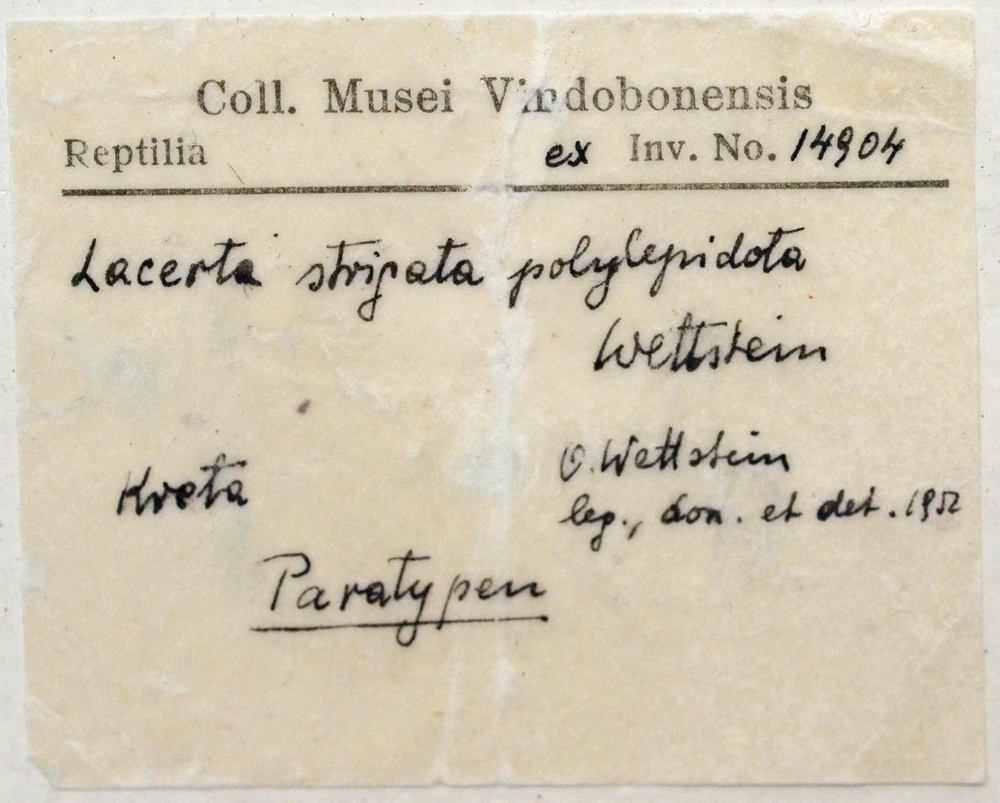 Coll. Musei Vindobonensis
Reptilia ex Inv. No. 14904
Lacerta strigata polylepidota
Wettstein
Kreta
O. Wettstein
leg., don. et det. 1952
Paratypen